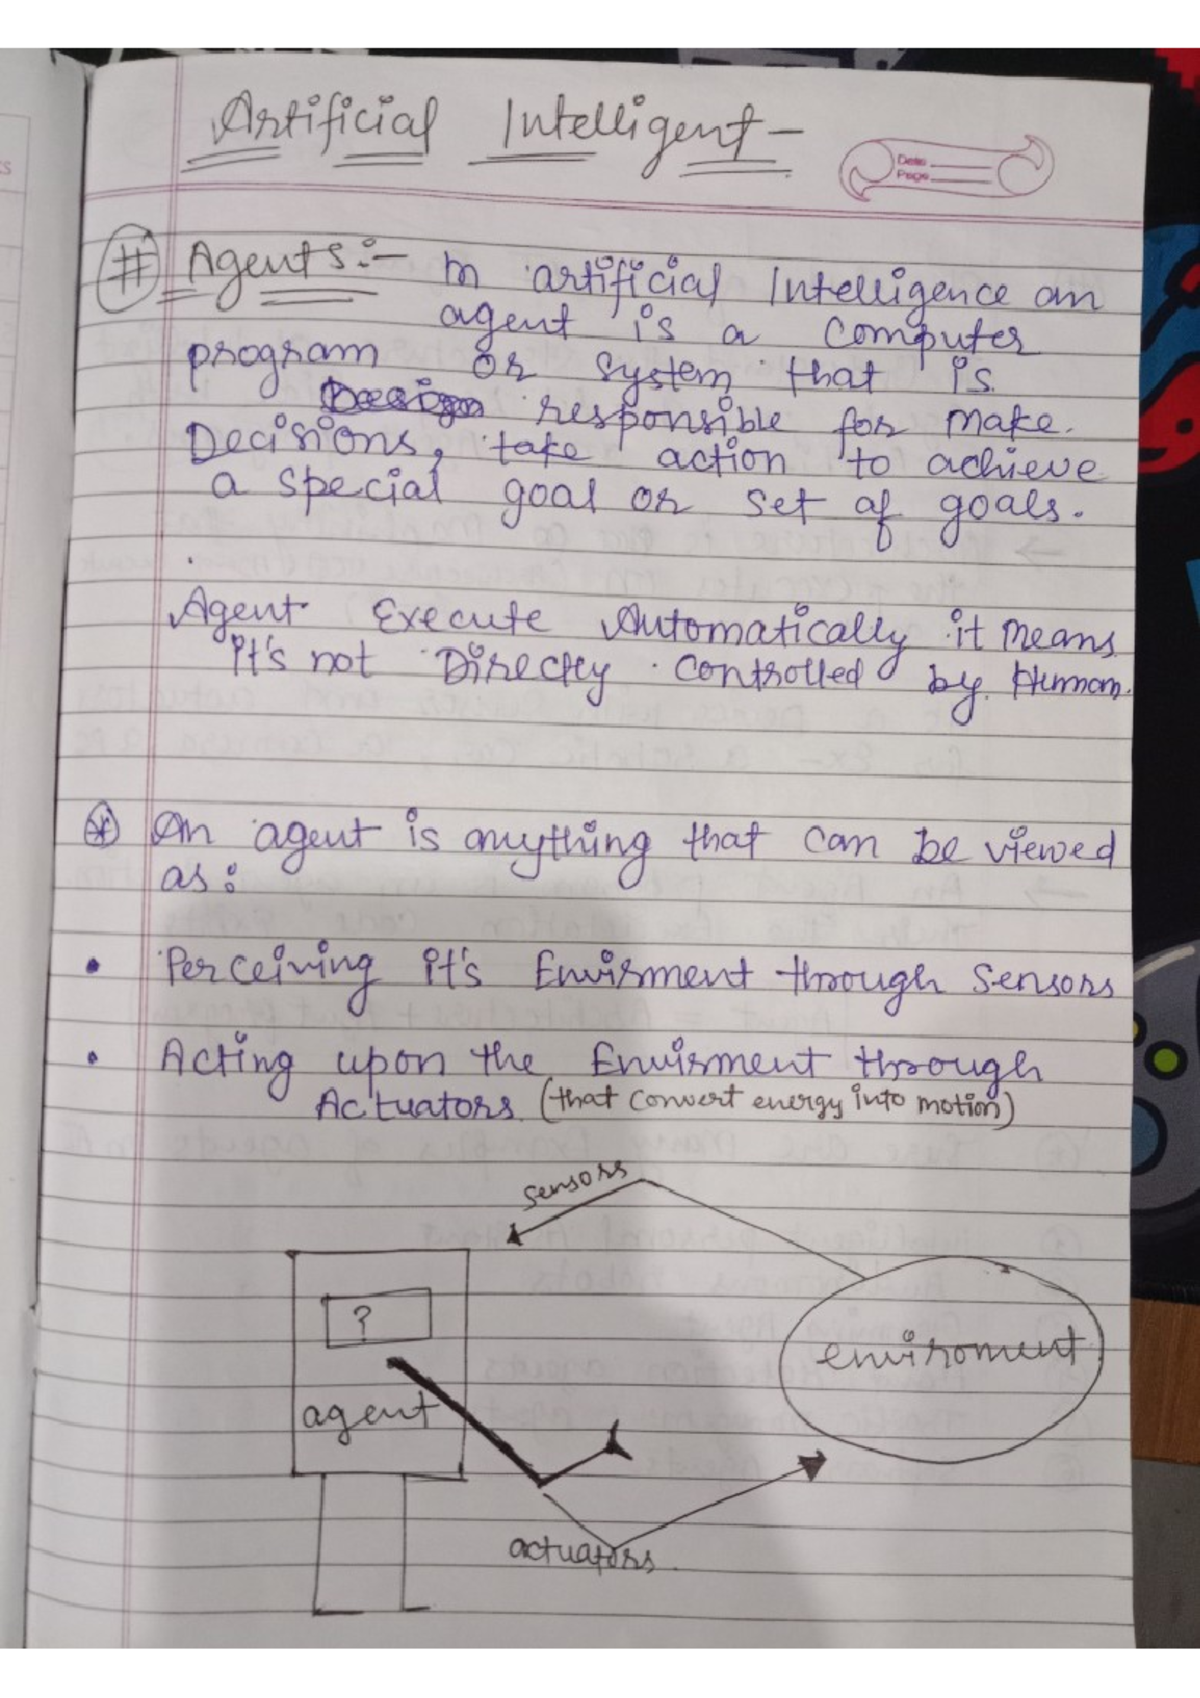 Artificial Intelligent -
Date
Page
# Agents :- In artificial Intelligence an
agent is a computer
program or system that is
responsible for make
Decisions, take action to achieve
a special goal or set of goals.
Agent Execute Automatically it means
it's not Directly controlled by Human.
* An agent is anything that can be viewed
as :
• Perceiving it's Envirment through Sensors
• Acting upon the Envirment through
Actuators (that convert energy into motion)
sensors
?
enviroment
agent
actuators